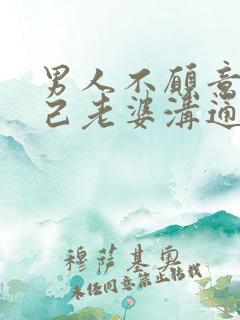 男人不願意
己老婆溝通
穆薩基奧
未经同意禁止转载